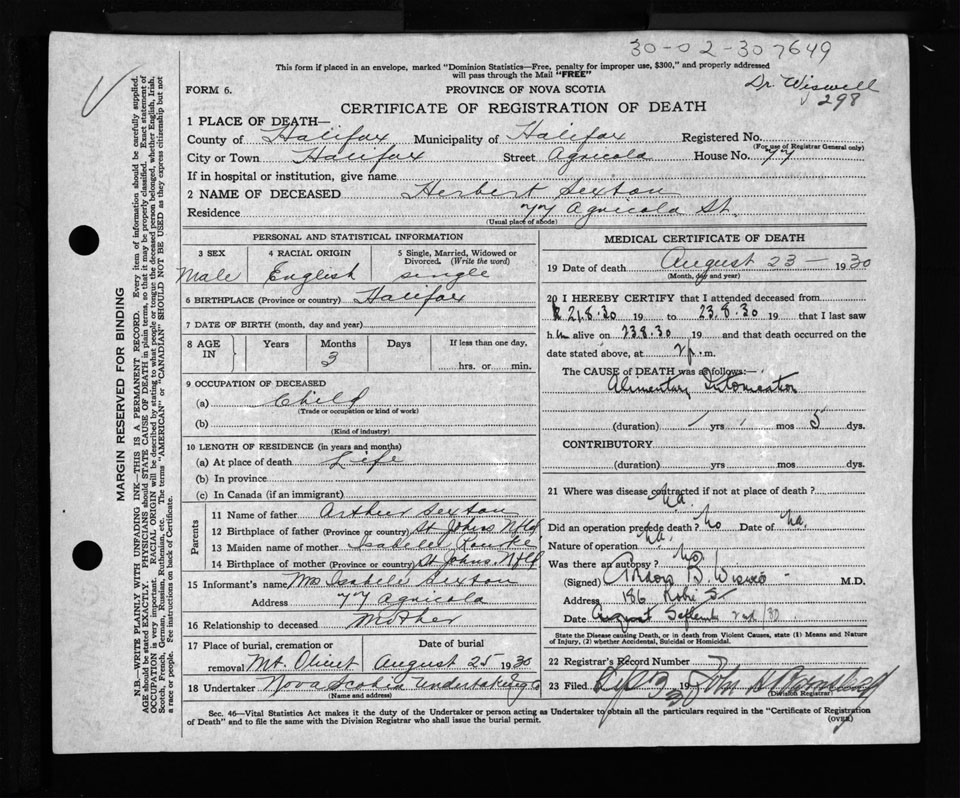 30-02-307649
This form if placed in an envelope, marked "Dominion Statistics—Free, penalty for improper use, $300," and properly addressed
will pass through the Mail "FREE"
Dr Wiswell
298
FORM 6.
PROVINCE OF NOVA SCOTIA
CERTIFICATE OF REGISTRATION OF DEATH
1 PLACE OF DEATH—
County of Halifax Municipality of Halifax Registered No.
(For use of Registrar General only)
City or Town Halifax Street Agricola House No. 77
If in hospital or institution, give name
2 NAME OF DECEASED Herbert Sexton
Residence 77 Agricola St.
(Usual place of abode)
PERSONAL AND STATISTICAL INFORMATION
3 SEX 4 RACIAL ORIGIN 5 Single, Married, Widowed or
Divorced. (Write the word)
Male English single
6 BIRTHPLACE (Province or country) Halifax
7 DATE OF BIRTH (month, day and year)
8 AGE IN Years Months Days If less than one day,
3 hrs. or min.
9 OCCUPATION OF DECEASED
(a) Child
(Trade or occupation or kind of work)
(b)
(Kind of industry)
10 LENGTH OF RESIDENCE (in years and months)
(a) At place of death Life
(b) In province
(c) In Canada (if an immigrant)
Parents
11 Name of father Arthur Sexton
12 Birthplace of father (Province or country) St Johns Nfld
13 Maiden name of mother Isabelle
14 Birthplace of mother (Province or country) St Johns, Nfld
15 Informant's name Mrs Isabele Sexton
Address 77 Agricola
16 Relationship to deceased Mother
17 Place of burial, cremation or Date of burial
removal Mt. Olivet August 25 1930
18 Undertaker Nova Scotia Undertaking Co
(Name and address)
MEDICAL CERTIFICATE OF DEATH
19 Date of death August 23 — 1930
(Month, day and year)
20 I HEREBY CERTIFY that I attended deceased from
21.8.30 19 to 23.8.30 19 that I last saw
h im alive on 23.8.30 19 and that death occurred on the
date stated above, at 2 p. m.
The CAUSE of DEATH was as follows:—
Alimentary Intoxication
(duration) yrs mos 5 dys.
CONTRIBUTORY
(duration) yrs mos dys.
21 Where was disease contracted if not at place of death?
na.
Did an operation precede death? No Date of na.
Nature of operation na.
Was there an autopsy? No
(Signed) B. Wiswell M.D.
Address 186 St
Date August Septemb 2nd/30
State the Disease causing Death, or in death from Violent Causes, state (1) Means and Nature
of Injury, (2) whether Accidental, Suicidal or Homicidal.
22 Registrar's Record Number
23 Filed Sept 3 1930 John
(Division Registrar)
Sec. 46—Vital Statistics Act makes it the duty of the Undertaker or person acting as Undertaker to obtain all the particulars required in the "Certificate of Registration
of Death" and to file the same with the Division Registrar who shall issue the burial permit.
(OVER)
MARGIN RESERVED FOR BINDING
N.B.—WRITE PLAINLY WITH UNFADING INK—THIS IS A PERMANENT RECORD. Every item of information should be carefully supplied.
AGE should be stated EXACTLY. PHYSICIANS should STATE CAUSE OF DEATH in plain terms, so that it may be properly classified. Exact statement of
OCCUPATION is very important. RACIAL ORIGIN will be described by stating to what people or tongue the deceased person belonged, whether English, Irish,
Scotch, French, German, Russian, Ruthenian, etc. The terms "AMERICAN" or "CANADIAN" SHOULD NOT BE USED as they express citizenship but not
a race or people. See instructions on back of Certificate.